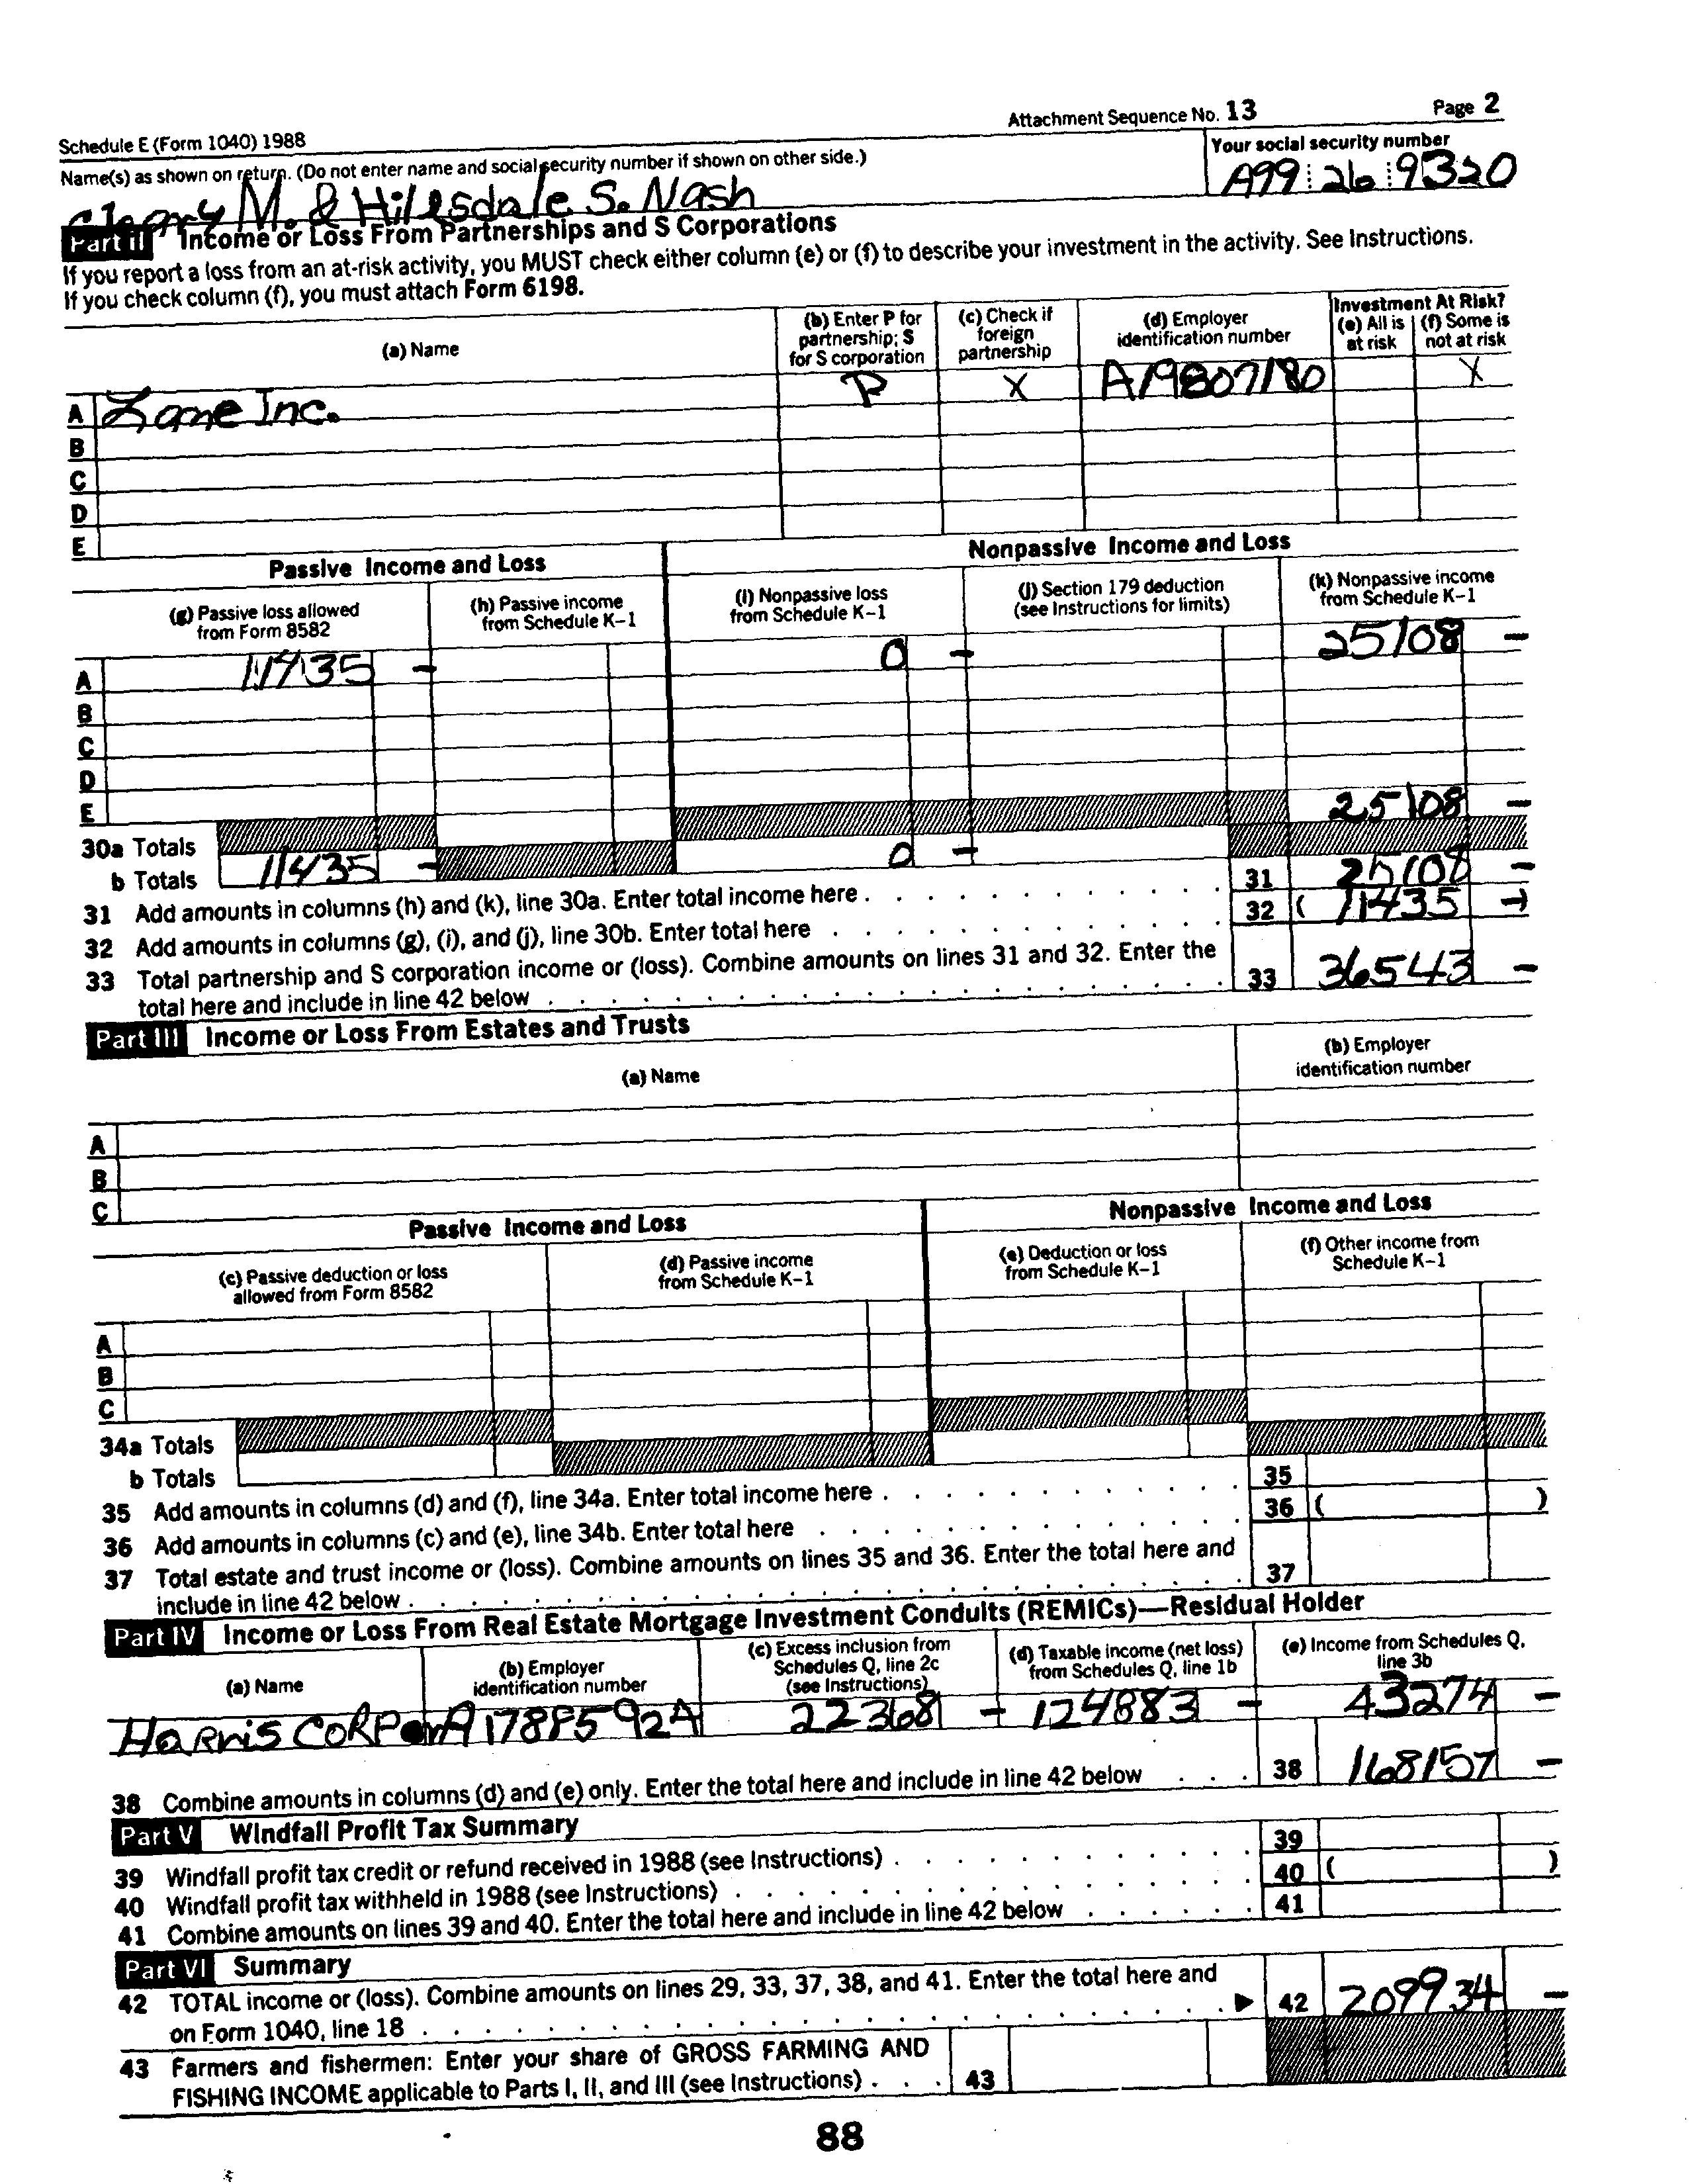 Schedule E (Form 1040) 1988 Attachment Sequence No. 13 Page 2
Name(s) as shown on return. (Do not enter name and social security number if shown on other side.) Your social security number
M. & Hillsdale S. Nash A99 26 9320
Part II Income or Loss From Partnerships and S Corporations
If you report a loss from an at-risk activity, you MUST check either column (e) or (f) to describe your investment in the activity. See Instructions.
If you check column (f), you must attach Form 6198.
(a) Name (b) Enter P for partnership; S for S corporation (c) Check if foreign partnership (d) Employer identification number Investment At Risk? (e) All is at risk (f) Some is not at risk
A Lane Inc. P X A19807180 X
B
C
D
E
Passive Income and Loss Nonpassive Income and Loss
(g) Passive loss allowed from Form 8582 (h) Passive income from Schedule K-1 (i) Nonpassive loss from Schedule K-1 (j) Section 179 deduction (see Instructions for limits) (k) Nonpassive income from Schedule K-1
A 11435 - 0 - 25108 -
B
C
D
E
30a Totals 25108 -
b Totals 11435 - 0 -
31 Add amounts in columns (h) and (k), line 30a. Enter total income here . 31 25108 -
32 Add amounts in columns (g), (i), and (j), line 30b. Enter total here 32 ( 11435 -)
33 Total partnership and S corporation income or (loss). Combine amounts on lines 31 and 32. Enter the
total here and include in line 42 below 33 36543 -
Part III Income or Loss From Estates and Trusts
(a) Name (b) Employer identification number
A
B
C
Passive Income and Loss Nonpassive Income and Loss
(c) Passive deduction or loss allowed from Form 8582 (d) Passive income from Schedule K-1 (e) Deduction or loss from Schedule K-1 (f) Other income from Schedule K-1
A
B
C
34a Totals
b Totals
35 Add amounts in columns (d) and (f), line 34a. Enter total income here . 35
36 Add amounts in columns (c) and (e), line 34b. Enter total here 36 ( )
37 Total estate and trust income or (loss). Combine amounts on lines 35 and 36. Enter the total here and
include in line 42 below . 37
Part IV Income or Loss From Real Estate Mortgage Investment Conduits (REMICs)—Residual Holder
(a) Name (b) Employer identification number (c) Excess inclusion from Schedules Q, line 2c (see Instructions) (d) Taxable income (net loss) from Schedules Q, line 1b (e) Income from Schedules Q, line 3b
Harris 22368 - 124883 - 43274 -
38 Combine amounts in columns (d) and (e) only. Enter the total here and include in line 42 below 38 168157 -
Part V Windfall Profit Tax Summary
39 Windfall profit tax credit or refund received in 1988 (see Instructions) . 39
40 Windfall profit tax withheld in 1988 (see Instructions) 40 ( )
41 Combine amounts on lines 39 and 40. Enter the total here and include in line 42 below 41
Part VI Summary
42 TOTAL income or (loss). Combine amounts on lines 29, 33, 37, 38, and 41. Enter the total here and
on Form 1040, line 18 ▶ 42 209934 -
43 Farmers and fishermen: Enter your share of GROSS FARMING AND
FISHING INCOME applicable to Parts I, II, and III (see Instructions) . 43
88